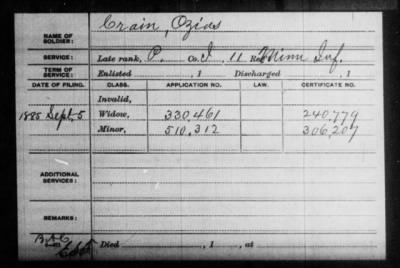 Crain, Ozias
NAME OF SOLDIER:
SERVICE: Late rank, P. Co. I, 11 Reg't Minn Inf.
TERM OF SERVICE: Enlisted , 1 Discharged , 1
DATE OF FILING. CLASS. APPLICATION NO. LAW. CERTIFICATE NO.
Invalid,
1885 Sept. 5 Widow, 330,461 240,779
Minor, 510,312 306,207
ADDITIONAL SERVICES:
REMARKS:
Died , 1 , at